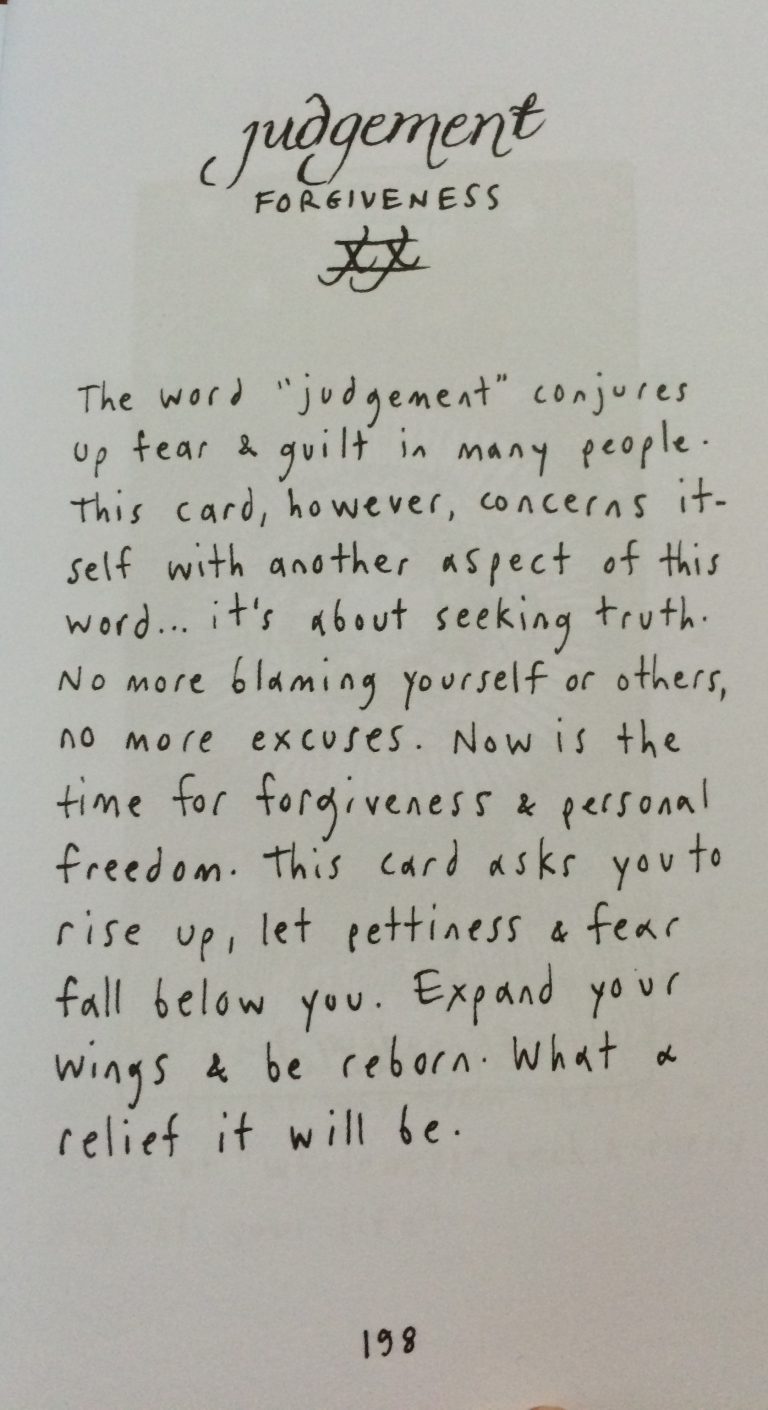 judgement
FORGIVENESS
XX
The word "judgement" conjures
up fear & guilt in many people.
This card, however, concerns it-
self with another aspect of this
word... it's about seeking truth.
No more blaming yourself or others,
no more excuses. Now is the
time for forgiveness & personal
freedom. This card asks you to
rise up, let pettiness & fear
fall below you. Expand your
wings & be reborn. What a
relief it will be.
198